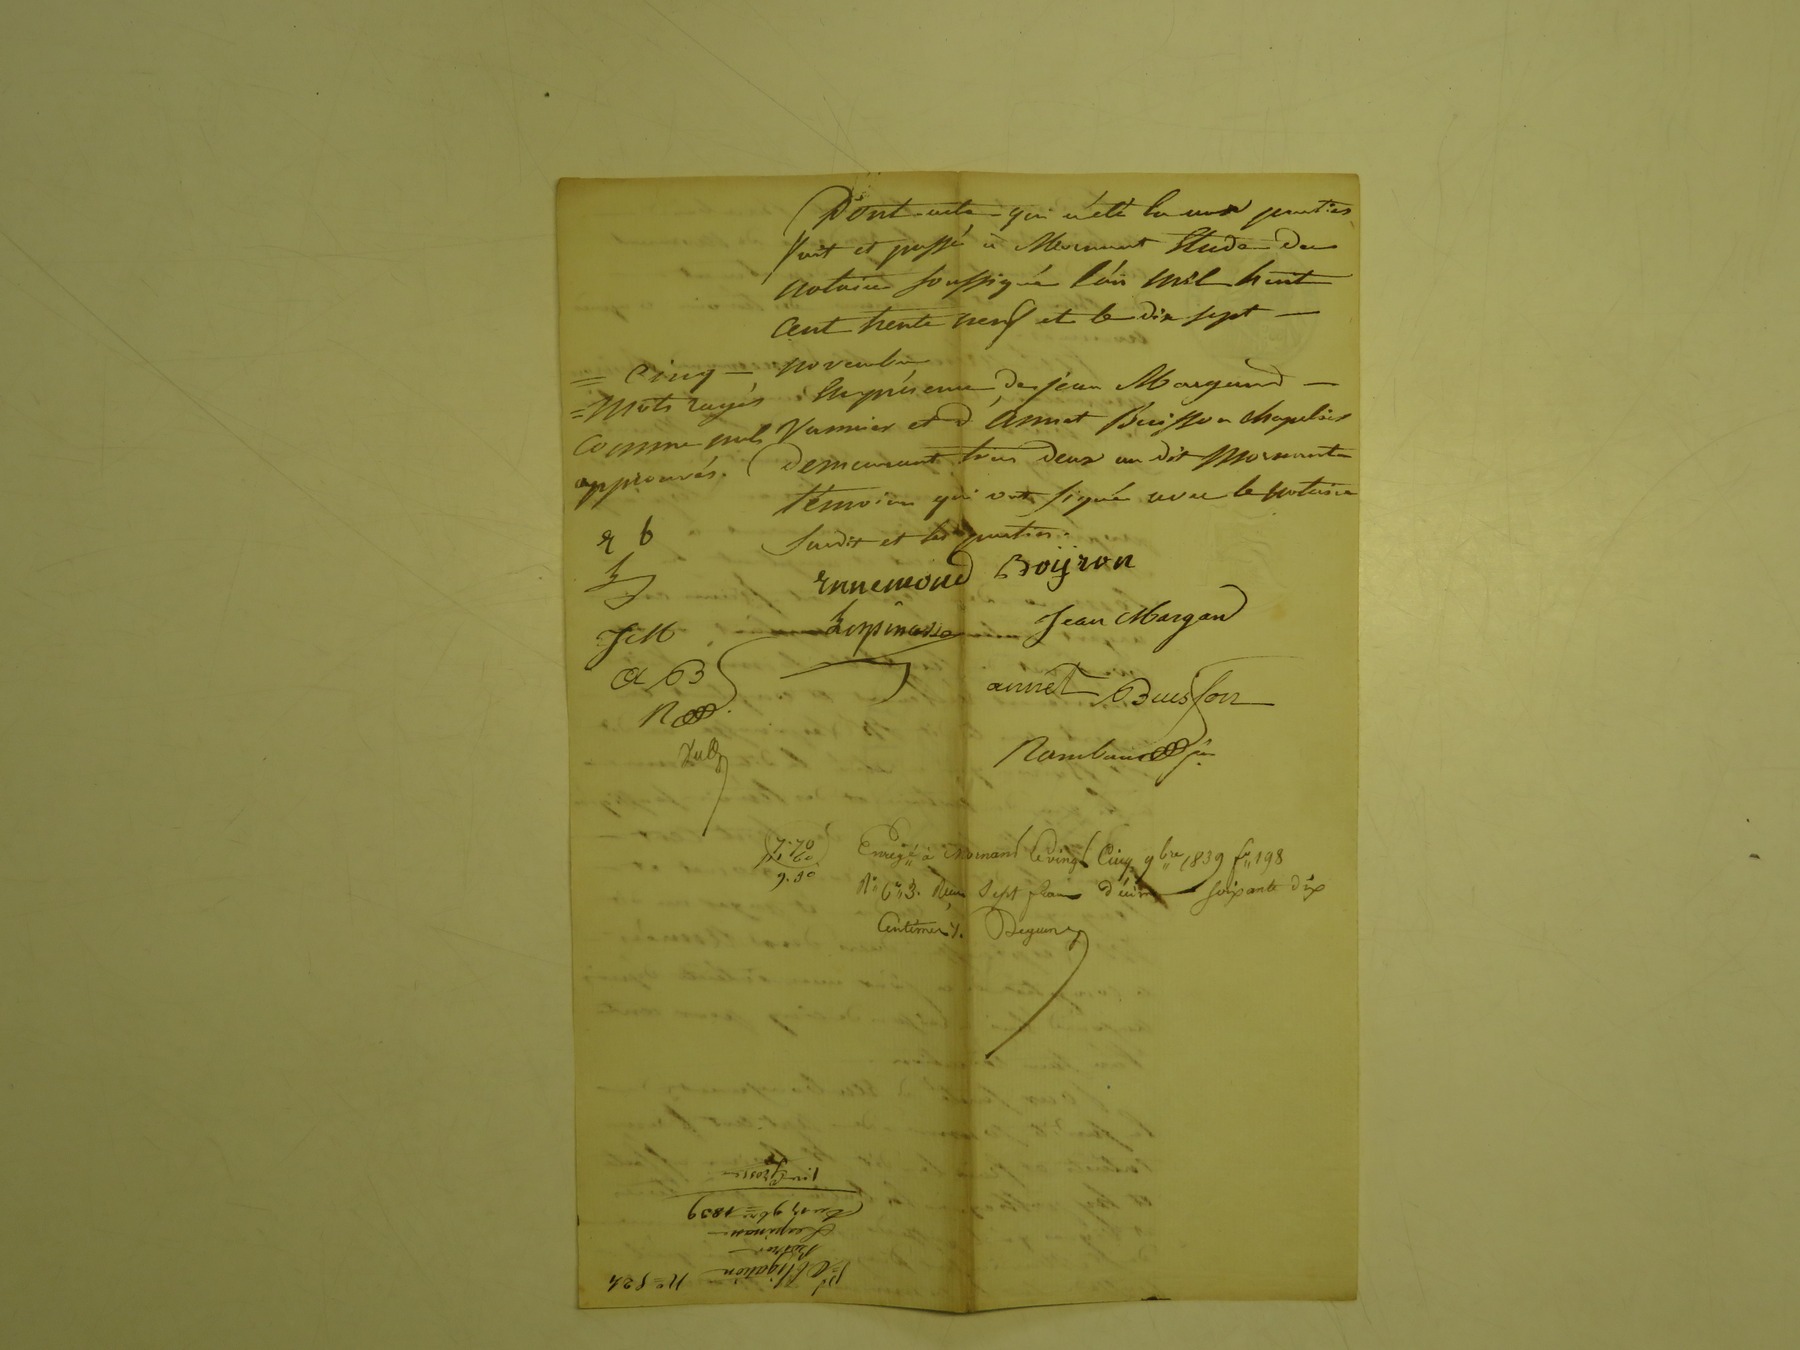 Dont acte qui a été lu aux parties
fait et passé à Mornant Etude du
notaire soussigné l'an mil huit
cent trente neuf et le dix sept —
novembre
En présence de Jean Margand —
Vannier et d'annet Buisson chapelier
demeurant tous deux au dit Mornant
témoins qui ont signé avec le notaire
susdit et les parties.
= Cinq —
= mots rayés
comme nuls
approuvés.
E B
JM
a B
Ennemond Boiyron
Lespinasse
Jean Margand
annet Buisson
Rambaud
7.70
9.30
Enregé à Mornant le vingt Cinq 9bre 1839 fo 198
Sept francs soixante dix
Centimes
Obligation
Lespinasse
Du 17 9bre 1839
Grosse
N° 524